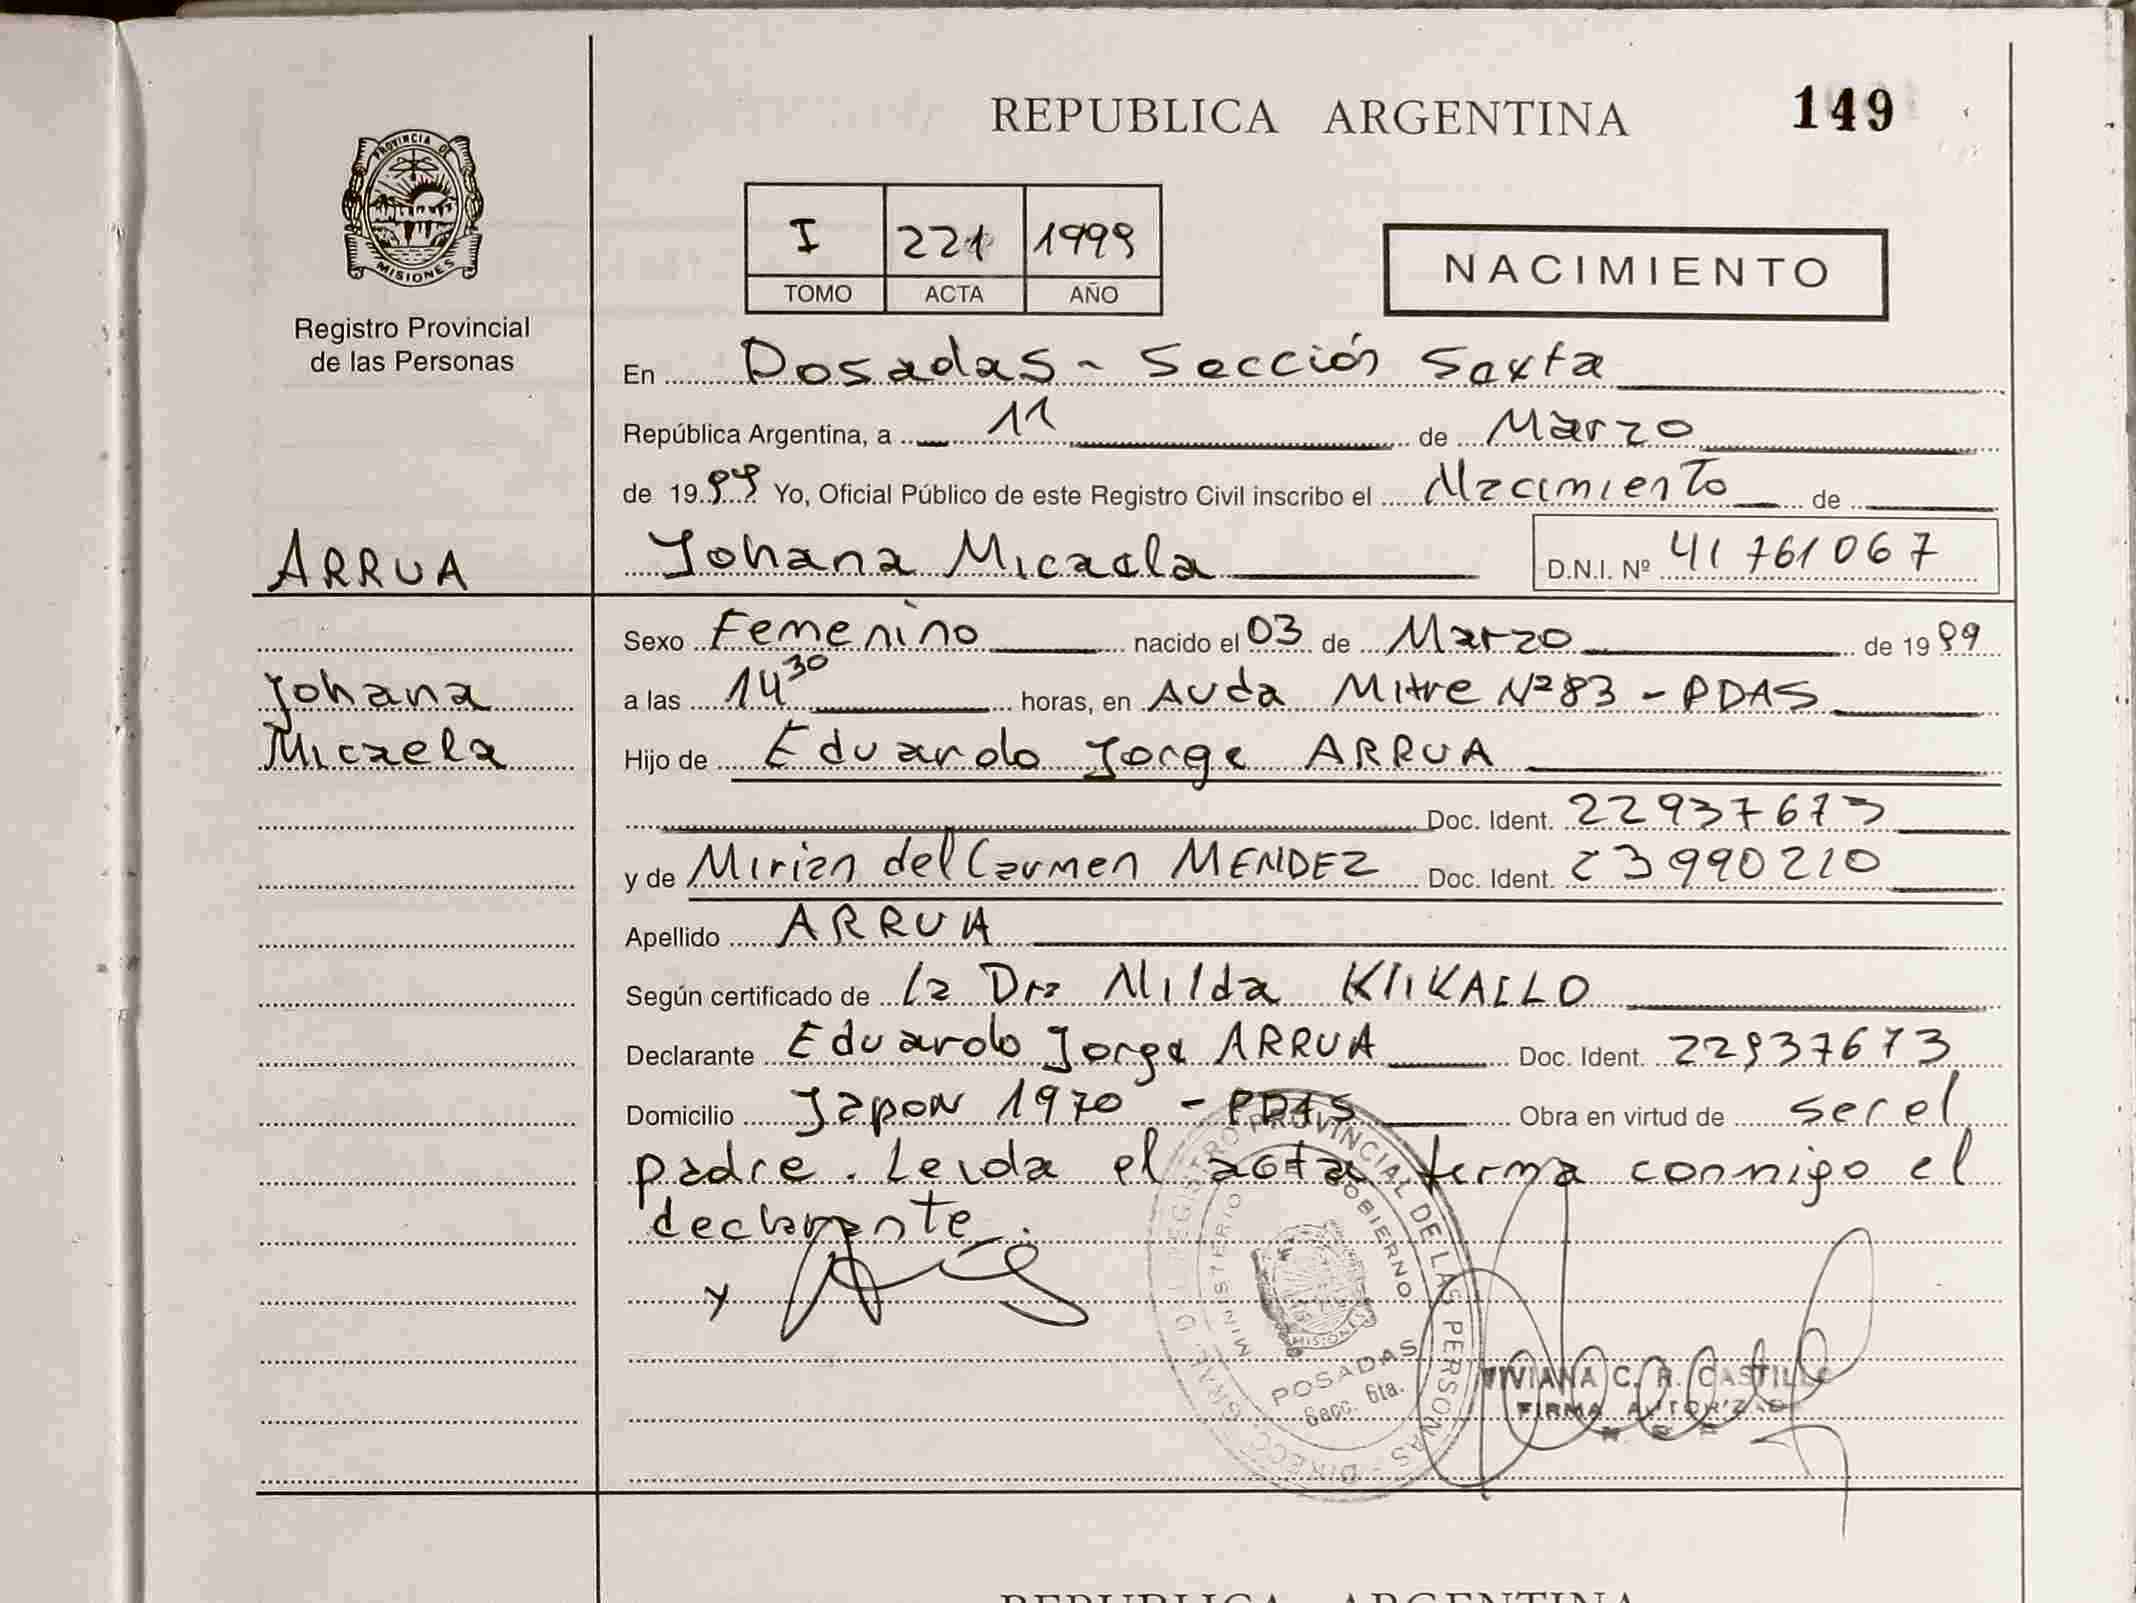 REPUBLICA ARGENTINA
149
PROVINCIA DE
MISIONES
Registro Provincial
de las Personas
I 221 1999
TOMO ACTA AÑO
NACIMIENTO
En Posadas - Sección Sexta
República Argentina, a 11 de Marzo
de 1999 Yo, Oficial Público de este Registro Civil inscribo el Nacimiento de
ARRUA
Johana Micaela D.N.I. Nº 41761067
Sexo Femenino nacido el 03 de Marzo de 1999
Johana
Micaela
a las 14 30 horas, en Avda Mitre Nº 83 - PDAS
Hijo de Eduardo Jorge ARRUA
Doc. Ident. 22937673
y de Mirian del Carmen MENDEZ Doc. Ident. 23990210
Apellido ARRUA
Según certificado de la Dra Nilda
Declarante Eduardo Jorge ARRUA Doc. Ident. 22937673
Domicilio Japon 1970 - PDAS Obra en virtud de ser el
padre. Leida el acta firma conmigo el
declarante.
DIRECC. GRAL. DEL REGISTRO PROVINCIAL DE LAS PERSONAS
MINISTERIO GOBIERNO
MISIONES
POSADAS
Secc. 6ta.
VIVIANA C. R. CASTILLO
FIRMA AUTORIZADA
REPUBLICA ARGENTINA